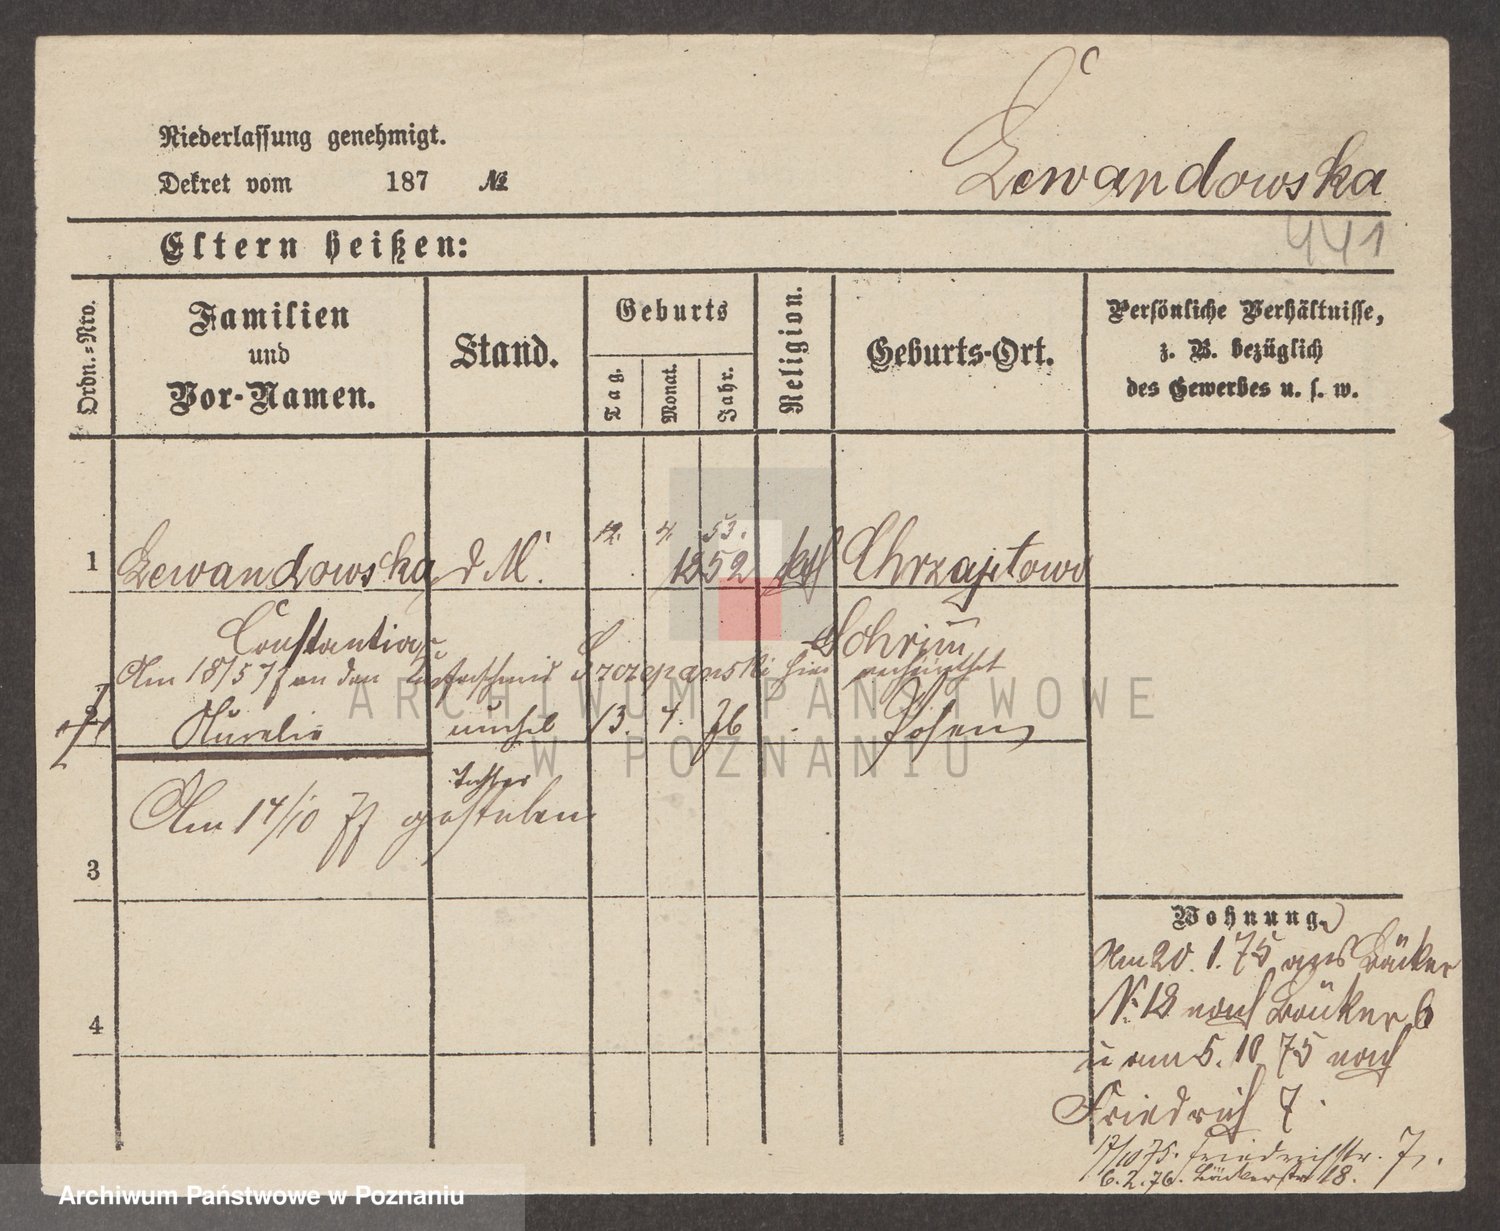 Niederlassung genehmigt.
Dekret vom 187 №
Lewandowska
441
Eltern heißen:
Ordn.=Nro.
Familien und Vor-Namen.
Stand.
Geburts
Tag.
Monat.
Jahr.
Religion.
Geburts-Ort.
Persönliche Verhältnisse,
z. B. bezüglich
des Gewerbes u. s. w.
12. 4. 53.
1 Lewandowska d. M. 1852 kth Chrzastowo
Constantia Schrimm
Am 18/5 77 an den Kupferschmid Szczepanski hier verheirathet
2 Aurelie unehel 13. 4. 76 Posen
Tochter
Am 17/10 77 gestorben
3
4
Wohnung.
Am 20. 1. 75 aus Bäcker
N. 18 nach Bäcker 6
u am 5. 10 75 nach
Friedrich 7.
17/10 75. Friedrichstr. 7.
6. 2. 76. Bäckerstr 18.
ARCHIWUM PAŃSTWOWE
W POZNANIU
Archiwum Państwowe w Poznaniu